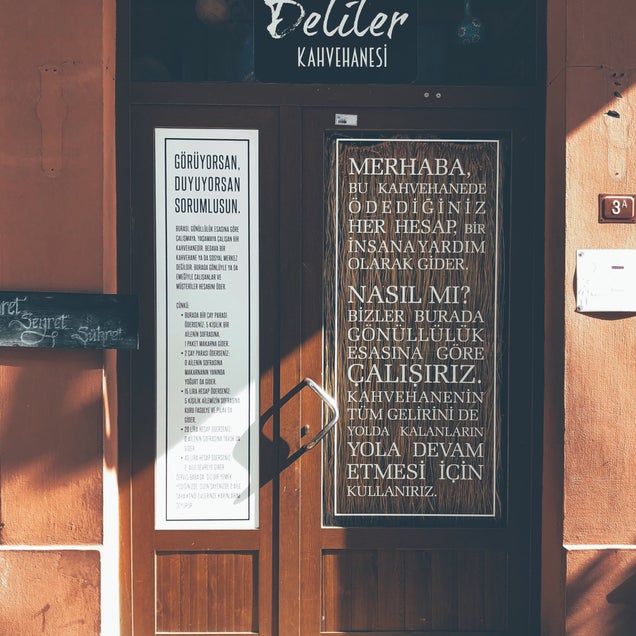 Deliler
KAHVEHANESİ
GÖRÜYORSAN,
DUYUYORSAN
SORUMLUSUN.
BURASI, GÖNÜLLÜLÜK ESASINA GÖRE
ÇALIŞMAYA, YAŞAMAYA ÇALIŞAN BİR
KAHVEHANEDİR. BEDAVA BİR
KAHVEHANE YA DA SOSYAL MERKEZ
DEĞİLDİR. BURADA GÖNLÜYLE YA DA
EMEĞİYLE ÇALIŞANLAR VE
MÜŞTERİLER HESABINI ÖDER.
ÇÜNKÜ:
• BURADA BİR ÇAY PARASI
ÖDERSENİZ; 5 KİŞİLİK BİR
AİLENİN SOFRASINA
1 PAKET MAKARNA GİDER.
• 2 ÇAY PARASI ÖDERSENİZ;
O AİLENİN SOFRASINA
MAKARNANIN YANINDA
YOĞURT DA GİDER.
• 15 LİRA HESAP ÖDERSENİZ;
5 KİŞİLİK AİLEMİZİN SOFRASINA
KURU FASULYE VE PİLAV DA
GİDER.
• 20 LİRA HESAP ÖDERSENİZ;
O AİLENİN SOFRASINA TAVUK DA
GİDER
• 40 LİRA HESAP ÖDERSENİZ;
MERHABA,
BU KAHVEHANEDE
ÖDEDİĞİNİZ
HER HESAP, BİR
İNSANA YARDIM
OLARAK GİDER.
NASIL MI?
BİZLER BURADA
GÖNÜLLÜLÜK
ESASINA GÖRE
ÇALIŞIRIZ.
KAHVEHANENİN
TÜM GELİRİNİ DE
YOLDA KALANLARIN
YOLA DEVAM
ETMESİ İÇİN
KULLANIRIZ.
3A
Seyret
Şükret